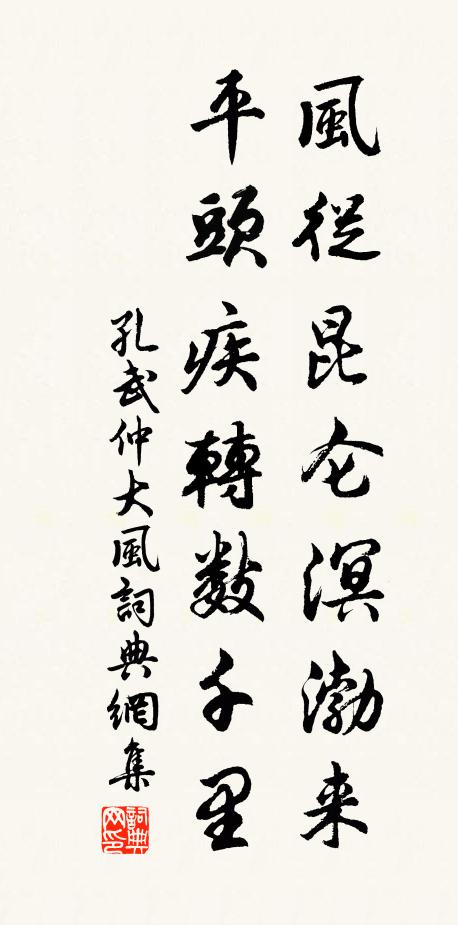 風從昆仑溟渤来
平頭疾轉數千里
孔武仲大風詞典網集
詞典网印